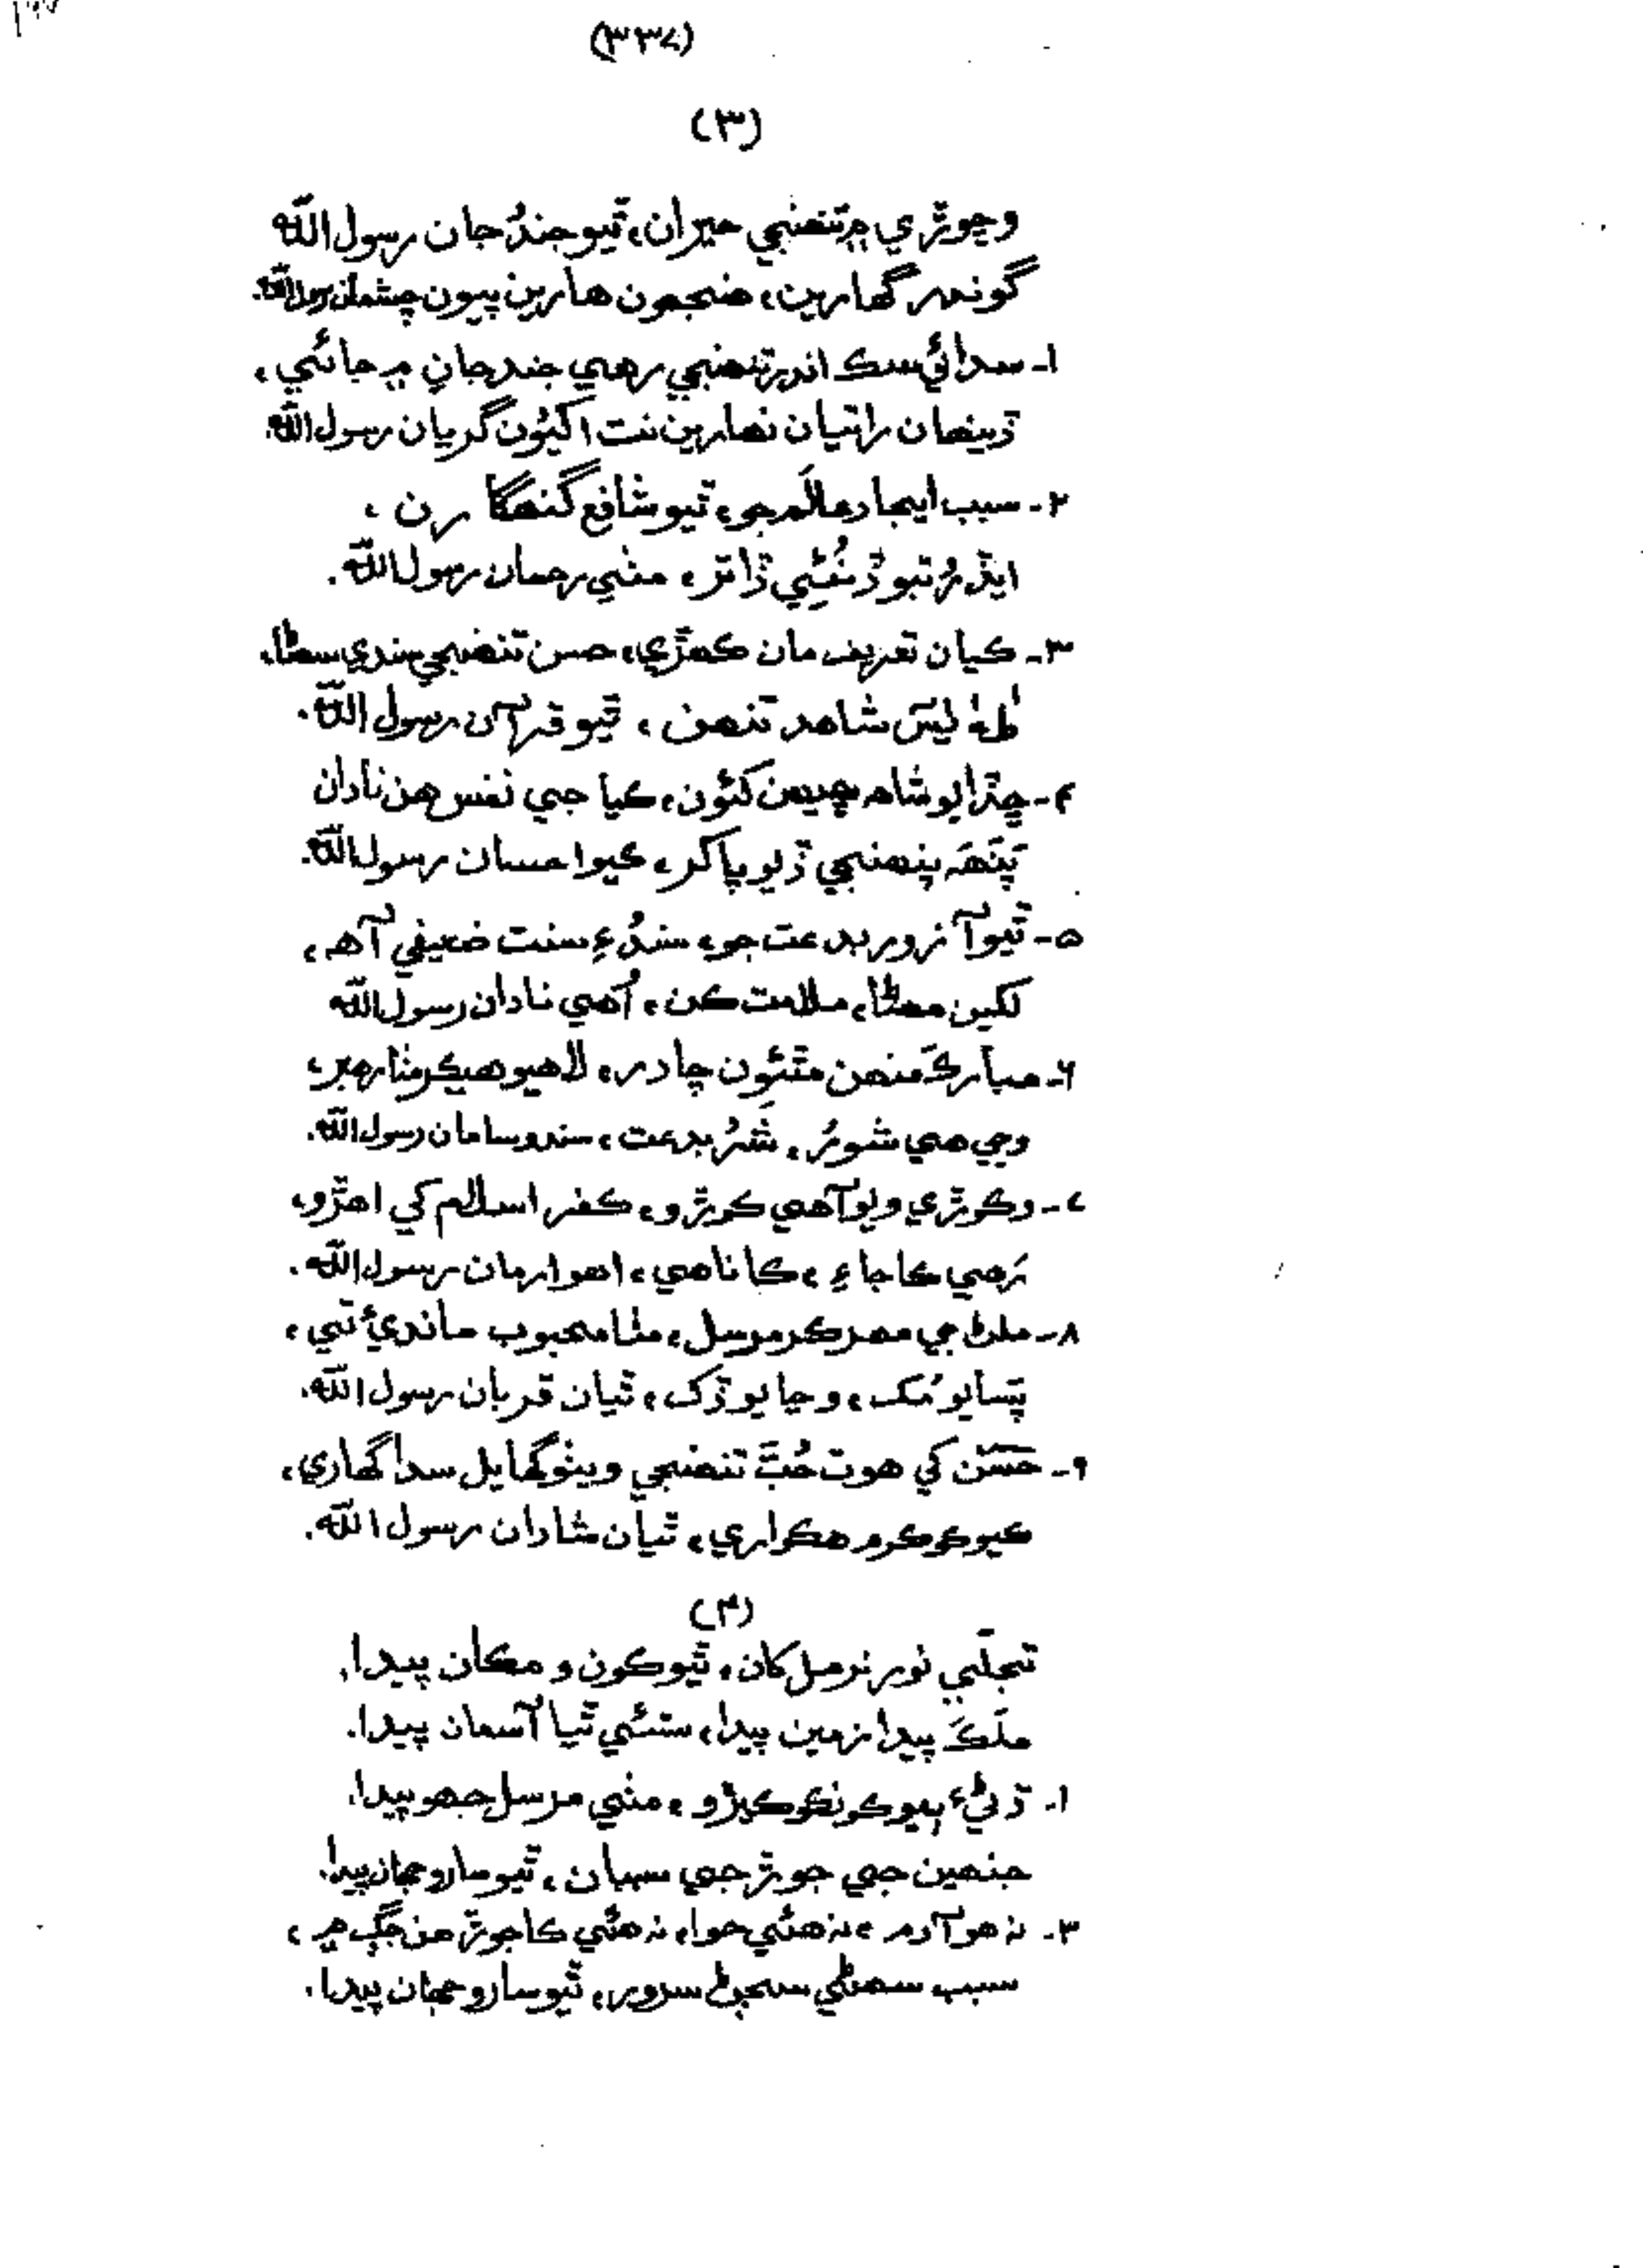 (۳۳۷)
(۳)
وڇوڙي ۾ تنھنجي حيران، ٿيو جندُ جان رسول اللّٰه
گوندر گھارين، ھنجھون ھارين پيون چشمان رسول اللّٰه.
۱ـ سدائي سڪ اندر تنھنجي رھي جند جان ۾ جائي،
ڏينھان راتيان نھارين نت اکيُون گريان رسول اللّٰه.
۲ـ سبب ايجاد عالَم جو، ٿيو شافع گنھگارن،
ايڏ رُتبو ڏنُئِي ڏاتر، مٺي رحمان رسول اللّٰه.
۳ـ ڪيان تعريف مان ڪھڙي، حسن تنھنجي سندي سھڻا،
طٰهٰ ليسَ شاھد تنھن، ٿيو قرآن رسول اللّٰه.
۴ـ ڇڏايو شاھ ڪئون، ڪيا جي نفس ھن نادان
پَنَھَہ پنھنجي ڏيو پاڪر، ڪيو احسان رسول اللّٰه.
۵ـ ٿيو آ زور بدعت جو، سندُءِ سنت ضعيفي آھ،
لکين مھڻا، ملامت ڪن، اُھي نادان رسول اللّٰه
۶ـ مبارڪَ منھن مٿئون چادر، لاھيو ھيڪر مٺا رھبر،
وڃي ھي شورُ، شَرُ بدعت، سندو سامان رسول اللّٰه.
۷ـ وڪوڙي ويو آھي ڪوڙو، ڪفر اسلام کي اھڙو،
رَھي ڪا جاءِ، ڪا ناھي، اھو ارمان رسول اللّٰه.
۸ـ ملڻ جي مھر ڪر مرسل، مٺا محبوب ماندي تي،
پَسايو مُک، وڃايو ڏک، ٿيان قربان رسول اللّٰه.
۹ـ حَسَن کي ھوت حُبَّ تنھنجي ويٺو گھايل سدا گھاري،
ڪيو ڪو ڪرم ھڪواري، ٿيان شادان رسول اللّٰه.
(۴)
تجلّي نور نرمل کان، ٿيو ڪون و مڪان پيدا.
ملَڪَ پيدا زمين پيدا، ستئي ٿيا آسمان پيدا.
۱ـ ڌڻيءَ ٻيو ڪونڪو ڪيڙو، مٺي مرسل جھو پيدا.
جنھين جي جوڙ جي سھان، ٿيو سارو جھان پيدا.
۳ـ نہ ھو آدم، نہ ھئي حوا، نہ ھئي ڪا جوڙ ھن جڳ ۾،
سبب سھڻي سڄڻ سرور، ٿيو سارو جھان پيدا.